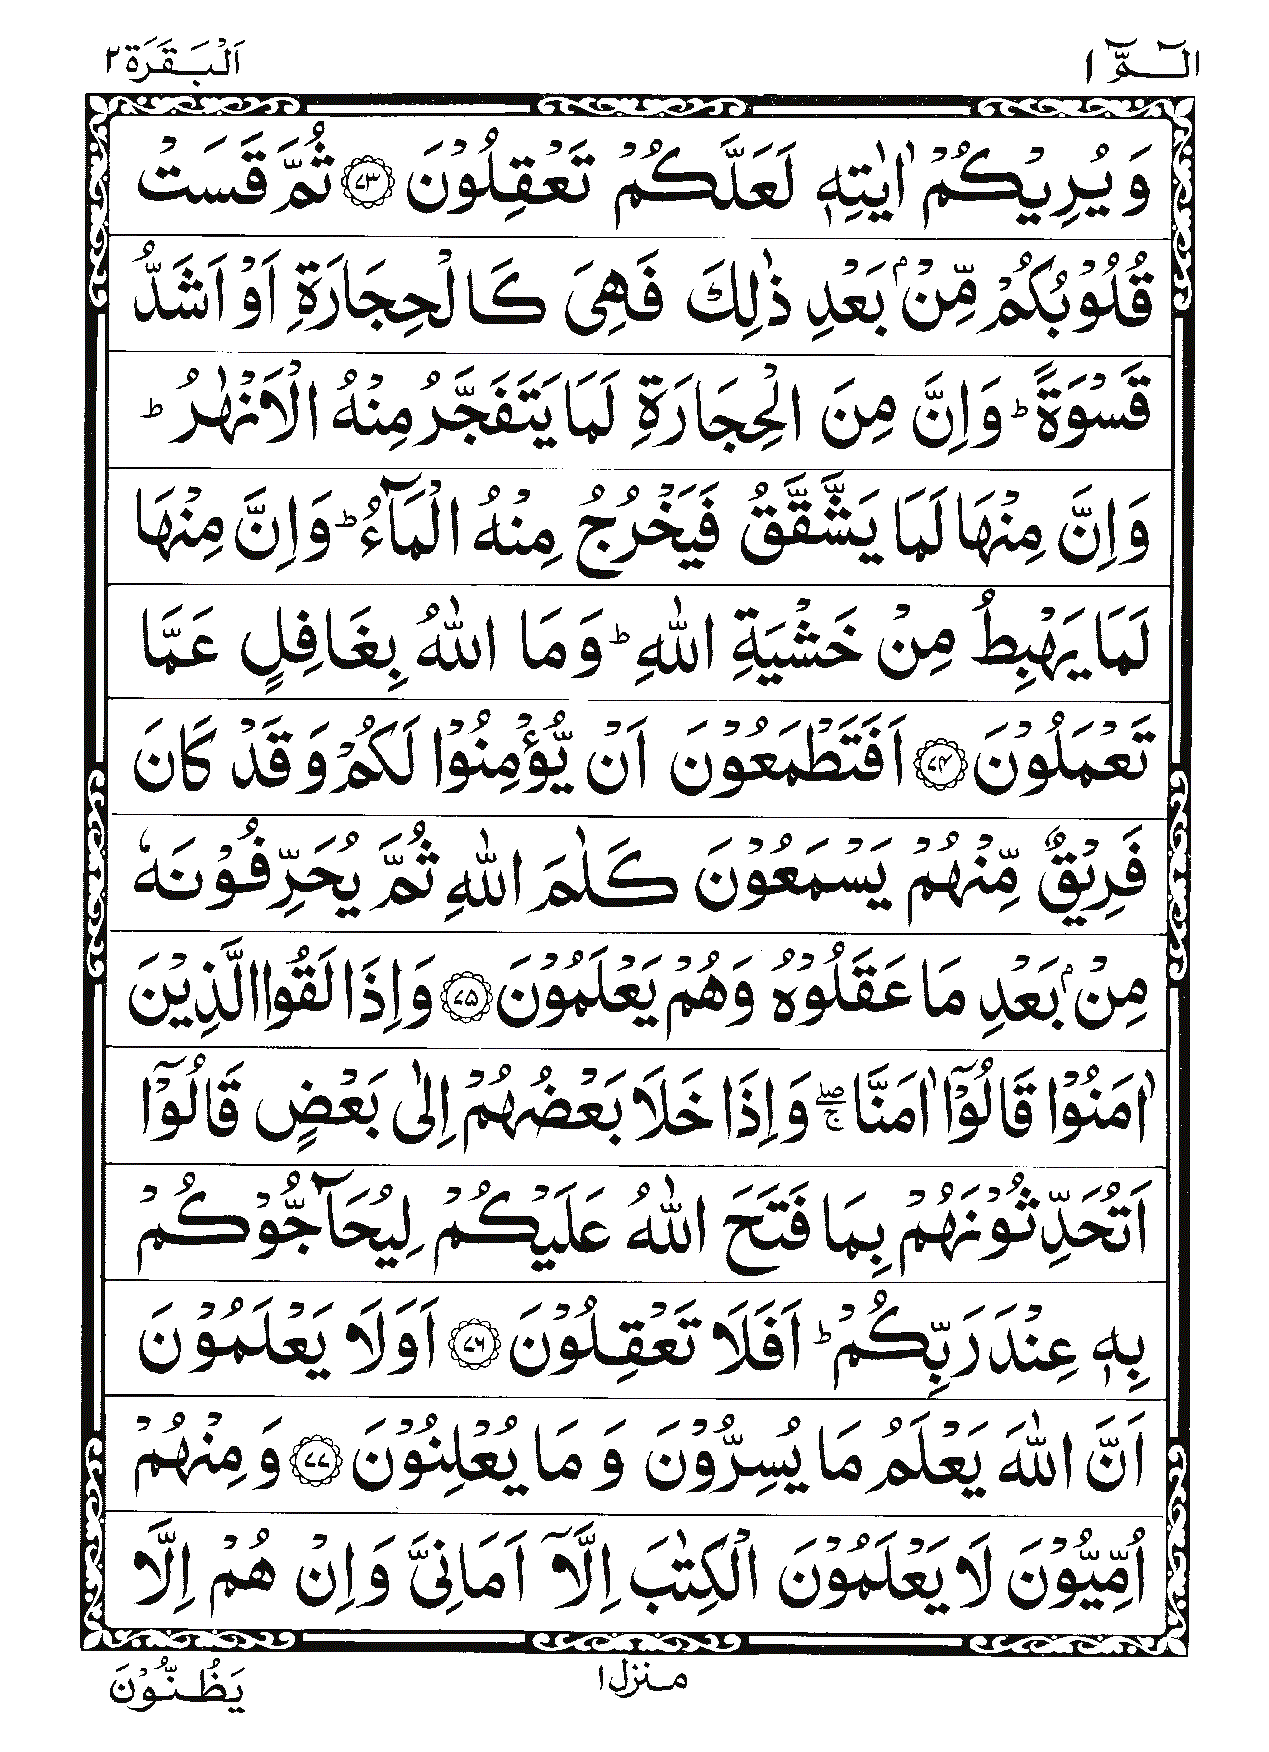 الٓـمّٓ ۱ اَلْبَقَرَة ۲
وَ يُرِيْكُمْ اٰيٰتِهٖ لَعَلَّكُمْ تَعْقِلُوْنَ ۝۷۳ ثُمَّ قَسَتْ
قُلُوْبُكُمْ مِّنْۢ بَعْدِ ذٰلِكَ فَهِىَ كَالْحِجَارَةِ اَوْ اَشَدُّ
قَسْوَةً ؕ وَاِنَّ مِنَ الْحِجَارَةِ لَمَا يَتَفَجَّرُ مِنْهُ الْاَنْهٰرُ ؕ
وَاِنَّ مِنْهَا لَمَا يَشَّقَّقُ فَيَخْرُجُ مِنْهُ الْمَآءُ ؕ وَاِنَّ مِنْهَا
لَمَا يَهْبِطُ مِنْ خَشْيَةِ اللّٰهِ ؕ وَمَا اللّٰهُ بِغَافِلٍ عَمَّا
تَعْمَلُوْنَ ۝۷۴ اَفَتَطْمَعُوْنَ اَنْ يُّؤْمِنُوْا لَكُمْ وَقَدْ كَانَ
فَرِيْقٌ مِّنْهُمْ يَسْمَعُوْنَ كَلٰمَ اللّٰهِ ثُمَّ يُحَرِّفُوْنَهٗ
مِنْۢ بَعْدِ مَا عَقَلُوْهُ وَهُمْ يَعْلَمُوْنَ ۝۷۵ وَاِذَا لَقُوا الَّذِيْنَ
اٰمَنُوْا قَالُوْٓا اٰمَنَّا ۖۚ وَاِذَا خَلَا بَعْضُهُمْ اِلٰى بَعْضٍ قَالُوْٓا
اَتُحَدِّثُوْنَهُمْ بِمَا فَتَحَ اللّٰهُ عَلَيْكُمْ لِيُحَآجُّوْكُمْ
بِهٖ عِنْدَ رَبِّكُمْ ؕ اَفَلَا تَعْقِلُوْنَ ۝۷۶ اَوَلَا يَعْلَمُوْنَ
اَنَّ اللّٰهَ يَعْلَمُ مَا يُسِرُّوْنَ وَ مَا يُعْلِنُوْنَ ۝۷۷ وَ مِنْهُمْ
اُمِّيُّوْنَ لَا يَعْلَمُوْنَ الْكِتٰبَ اِلَّآ اَمَانِىَّ وَاِنْ هُمْ اِلَّا
منزل ۱ يَظُنُّوْنَ